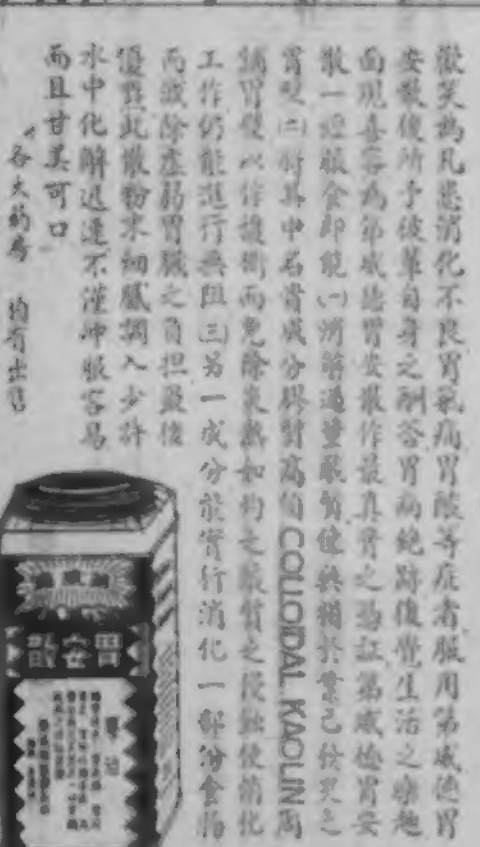 微笑為凡患消化不良胃氣痛胃酸等症者服用第威德胃
安散後所予彼輩自身之酬答胃病絕跡復覺生活之樂趣
面現喜容為第威德胃安散作最真實之憑証第威德胃安
散一經服食即能(一)消解過量酸質使無損於業已發炎之
胃壁(二)將其中名貴成分膠對高領COLLOIDAL KAOLIN
舖胃壁以作護衛而免除炙熱如灼之酸質之侵蝕使消化
工作仍能進行無阻(三)另一成分能實行消化一部份食物
而減除虛弱胃臟之負担最後
優點此散粉末細膩調入少許
水中化解迅速不僅沖服容易
而且甘美可口
各大药房 均有出售
胃安散